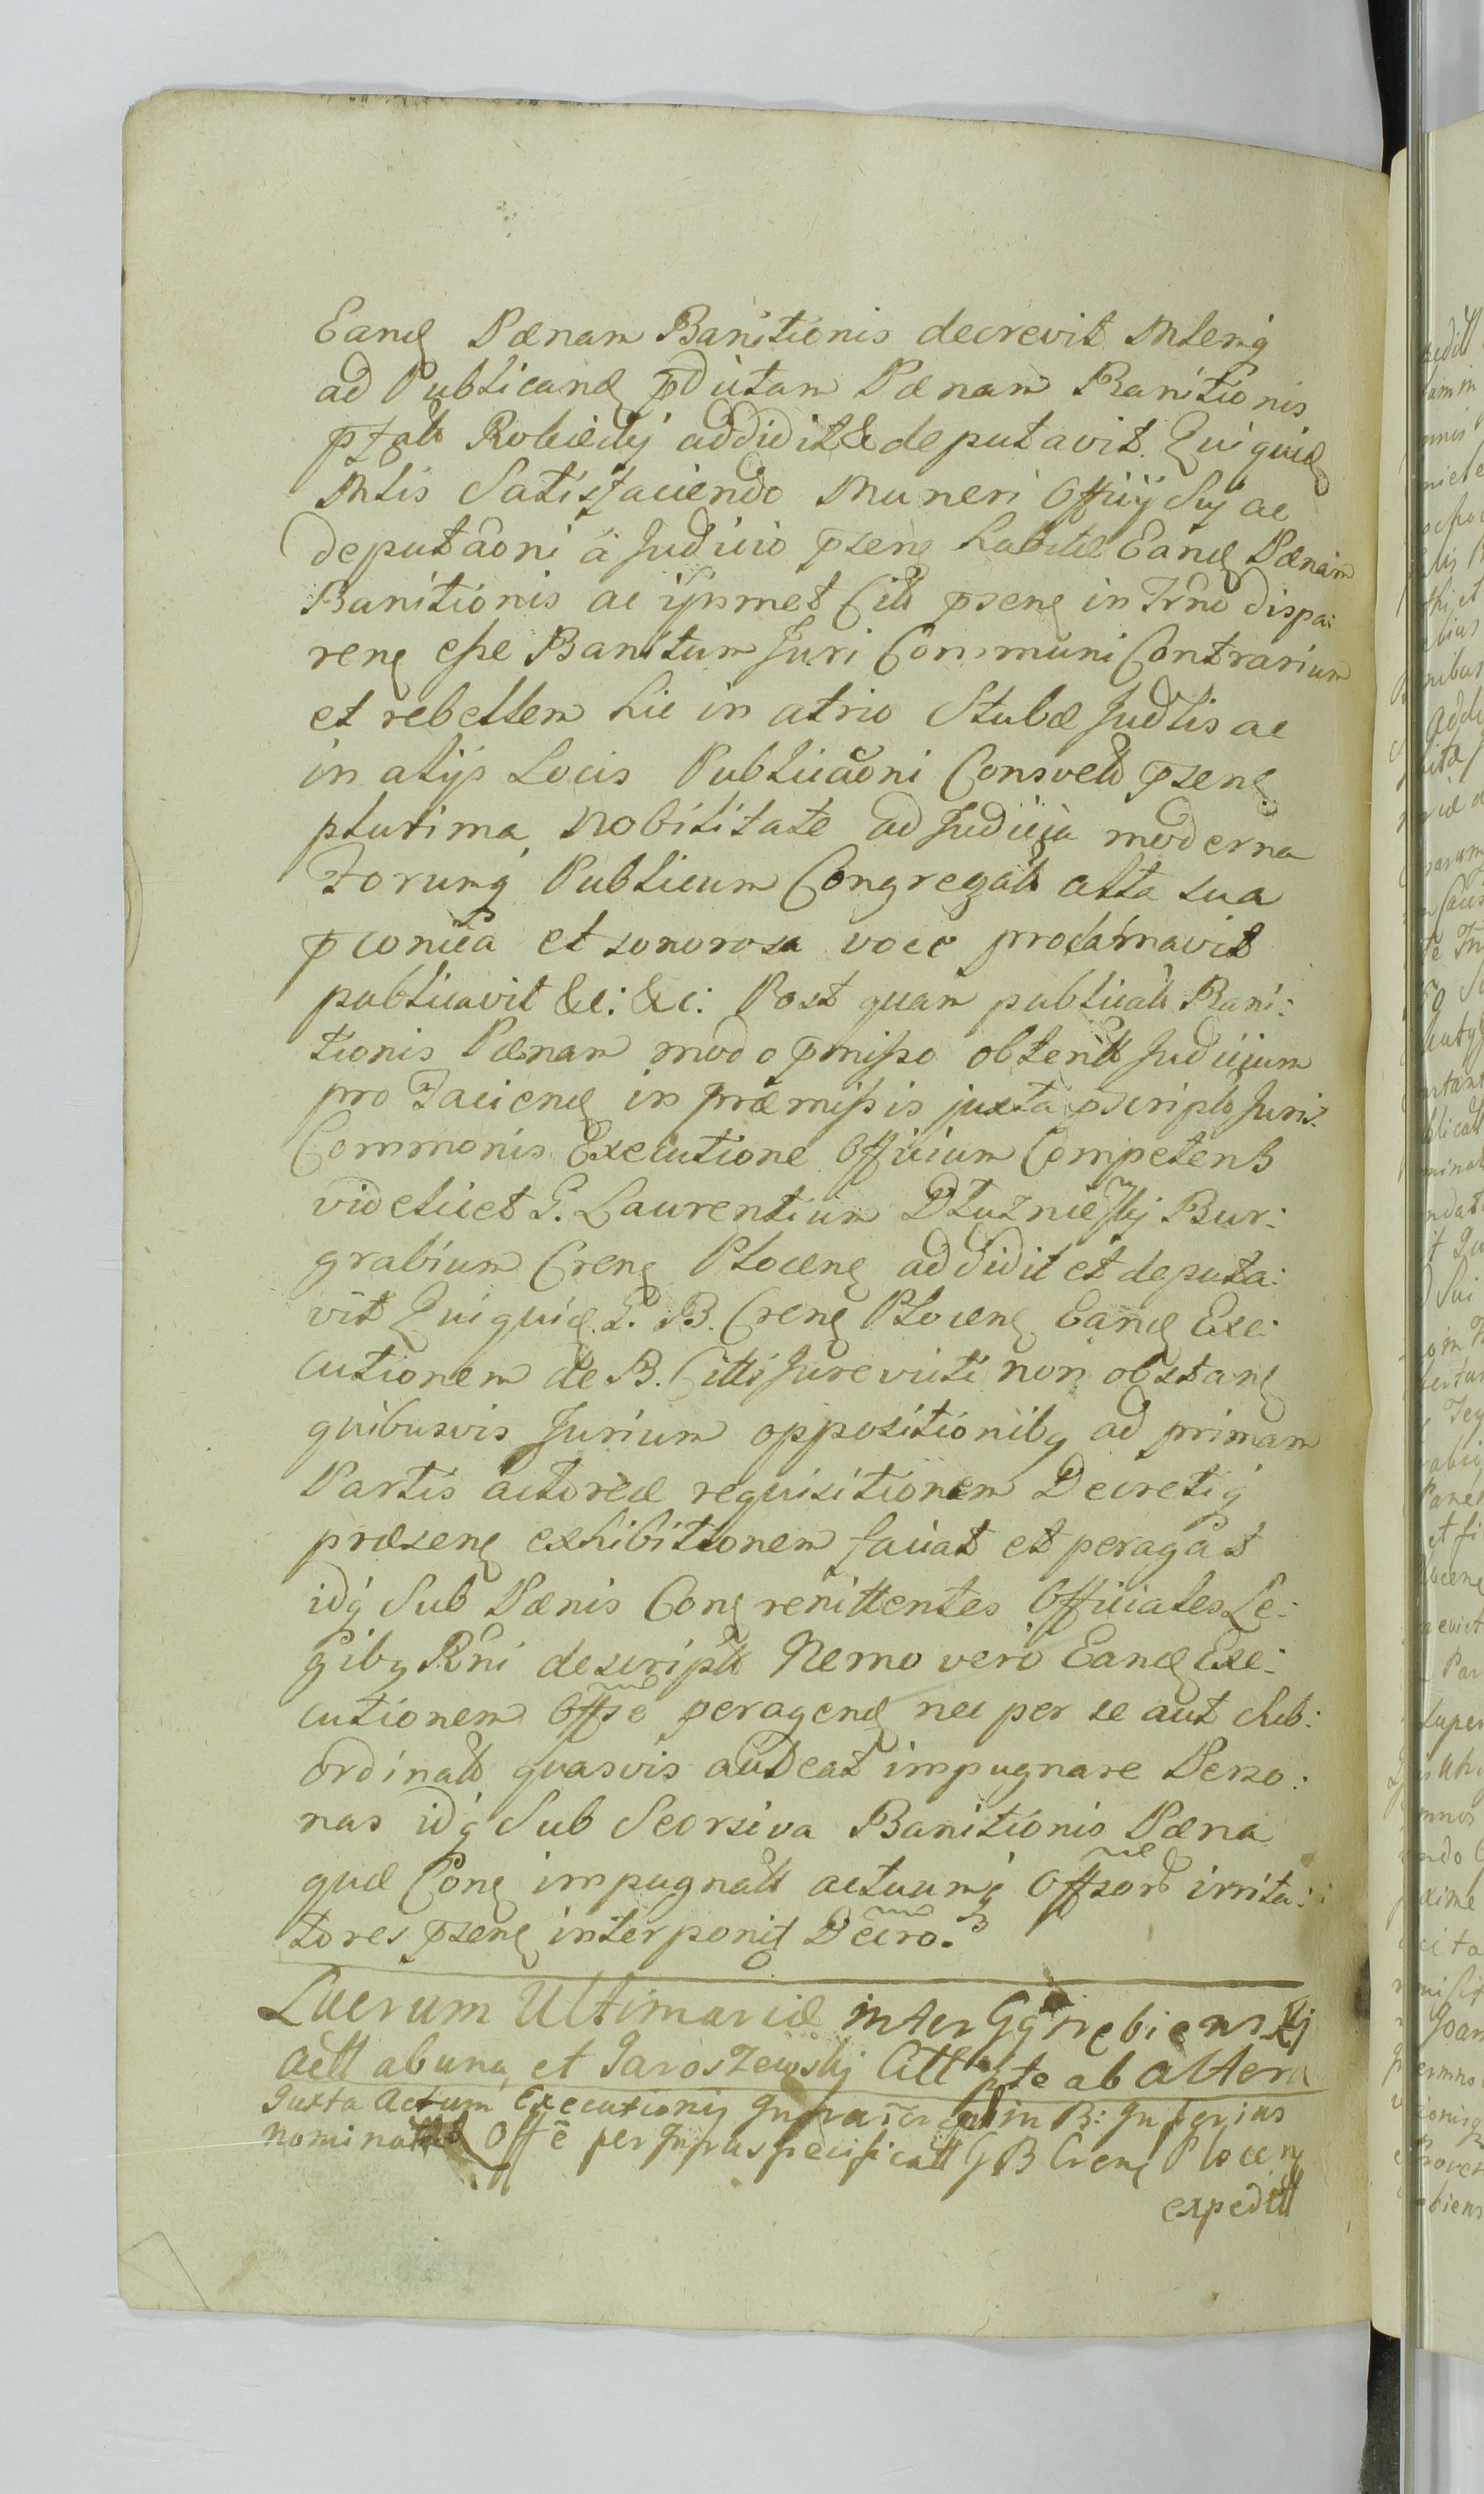 Eand Pænam Banitionis decrevit Mlemq
ad Publicand pdictam Pænam Banitionis
addidit & deputavit. Qui quid
Mlis Satisfaciendo Muneri Officij Suj ac
deputãoni à Judicio psens habitæ Eand Pænam
Banitionis ac ipsmet Citt psens in Trno dispa:
rens esse Banitum Juri Communi Contrarium
et rebellem hic in atrio Stubæ Judlis ac
in alijs Locis Publicãoni Consvett psens
plurima Nobilitate ad Judicia moderna
Forumq Publicum Congregatt alta sua
pconica et sonorosa voce proclamavit
publicavit &c: &c: Post quam publicatt Bani:
tionis Pænam modo pmisso obtentt Judicium
pro Faciend in præmissis juxta pscripto Juris
Commonis Executione Officium Competens
videlicet G. Laurentium Dłuzniewskj Bur:
grabium Crens Plocens addidit et deputa:
vit Qui quid. G. B. Crens Plocens Eand Exe:
cutionem de B. Citti Jure victi non obstans
quibusvis Jurium oppositionibq ad primam
Partis actoreæ requisitionem Decretiq
præsens exhibitionem faciat et peragat
idq Sub Pænis Cons renittentes Officiales Le:
gibq Rni descriptt Nemo vero Eand Exe:
cutionem Offse peragend nec per se aut Sub:
ordinatt quasvis audeat impugnare Perso:
nas idq Sub Seorsiva Banitionis Pæna
quæ Cons impugnatt actuumq Offsord irrita:
tores psens interponit Decro.
Lucrum Ultimariæ inter Ggnrębienskj
Actt ab una, et Jaroszewskj Citt pte ab altera
Juxta Actum Executionis in B: Inferius
Offe per Infraspecificatt G B Crens Plocens
expeditt